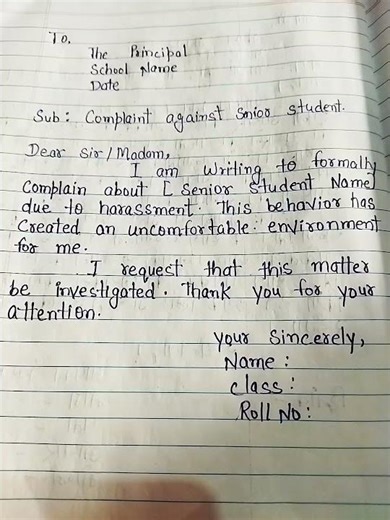 To,
The Principal
School Name
Date
Sub: Complaint against Snior student.
Dear Sir/Madam,
I am writing to formally
Complain about [ Senior Student Name]
due to harassment. This behavior has
Created an uncomfortable environment
for me.
I request that this matter
be investigated. Thank you for your
attention.
your Sincerely,
Name :
Class :
Roll No :